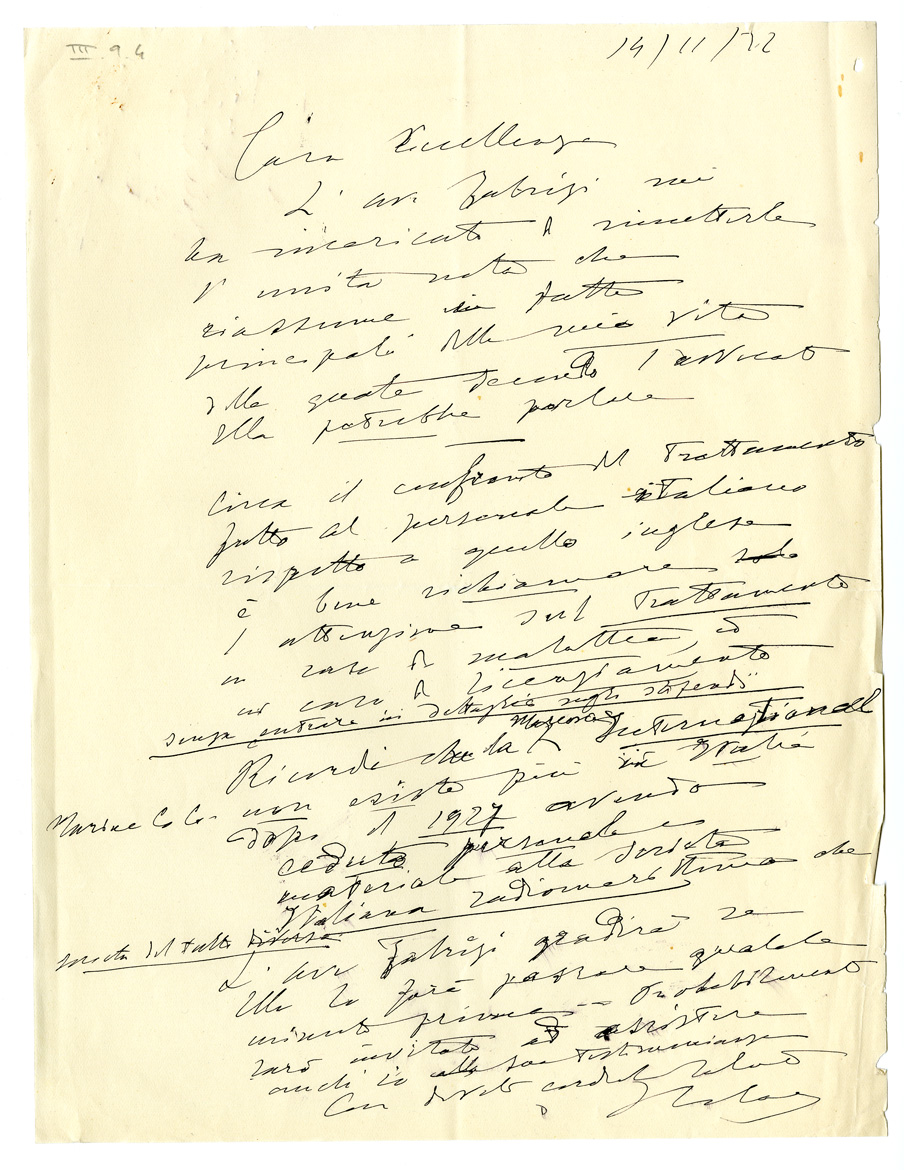 III. 9. 4
14/11/32
Cara Eccellenza
L' avv Fabrizi mi
ha incaricato di rimetterle
l' unita nota che
riassume in fatto
principali della mia vita
della quale secondo l' avvocato
Ella potrebbe parlare
Circa il confronto del Trattamento
fatto al personale italiano
rispetto a quello inglese
è bene richiamare solo
l' attenzione sul Trattamento
in caso di malattia, ed
in caso di licenziamento
senza entrare in dettaglio sugli stipendii
Ricordi che la Marconi International
Marine Co Co. non esiste più in Italia
dopo il 1927 avendo
ceduto personale e
materiale alla Società
Italiana radiomarittima che
società del tutto diversa
L' avv Fabrizi gradirà se
Ella lo farà passare qualche
minuto prima -- Probabilmente
sarò invitato ad assistere
anch' io alla sua testimonianza
Con devoti cordiali saluti